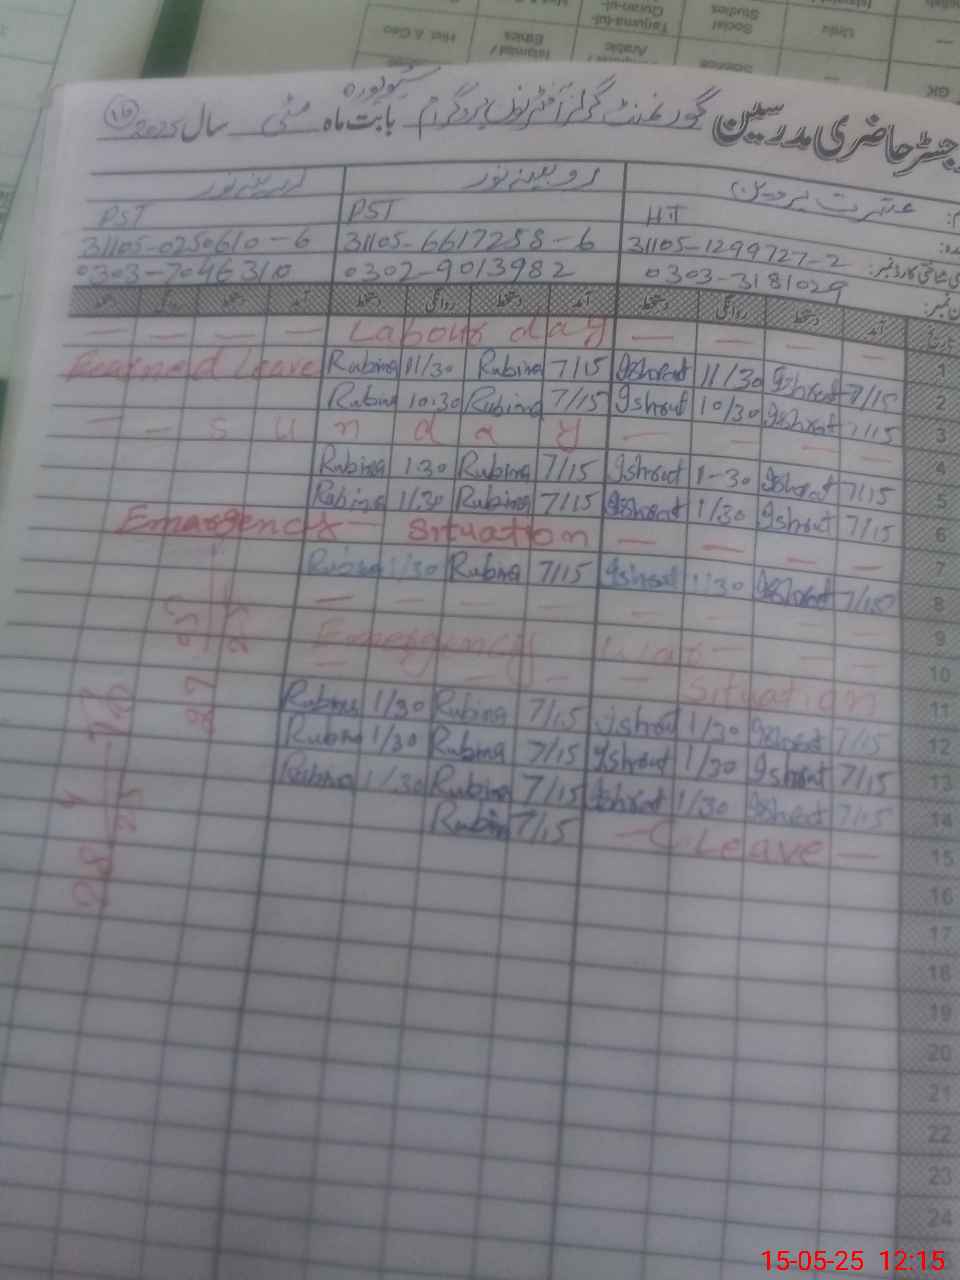 رجسٹر حاضری مدرسین گورنمنٹ گرلز آفٹرنون پروگرام بابت ماہ مئی سال 2025
عشرت پروین روبینہ نور
HT PST PST
31105-1299727-2 31105-6617258-6 31105-0250610-6
0303-3181029 0302-9013982 0303-7046310
آمد دستخط روانگی دستخط آمد دستخط روانگی دستخط آمد دستخط روانگی دستخط
— — — — Labour day — — — — 1
Earned Leave Rubina 11/30 Rubina 7/15 Ishrat 11/30 Ishrat 7/15 2
Rubina 10:30 Rubina 7/15 Ishrat 10/30 Ishrat 7/15 3
— — S u n d a y — — — — 4
Rubina 1:30 Rubina 7/15 Ishrat 1-30 Ishrat 7/15 5
Rubina 1/30 Rubina 7/15 Ishrat 1/30 Ishrat 7/15 6
Emergency Situation — — — — 7
Rubina 1/30 Rubina 7/15 Ishrat 1/30 Ishrat 7/15 8
— — — — — — — — 9
Emergency war — — — 10
— — — — — Situation 11
Rubina 1/30 Rubina 7/15 Ishrat 1/30 Ishrat 7/15 12
Rubina 1/30 Rubina 7/15 Ishrat 1/30 Ishrat 7/15 13
Rubina 1/30 Rubina 7/15 Ishrat 1/30 Ishrat 7/15 14
Rubina 7/15 — C Leave — 15
16
17
18
19
20
21
22
23
24
15-05-25 12:15